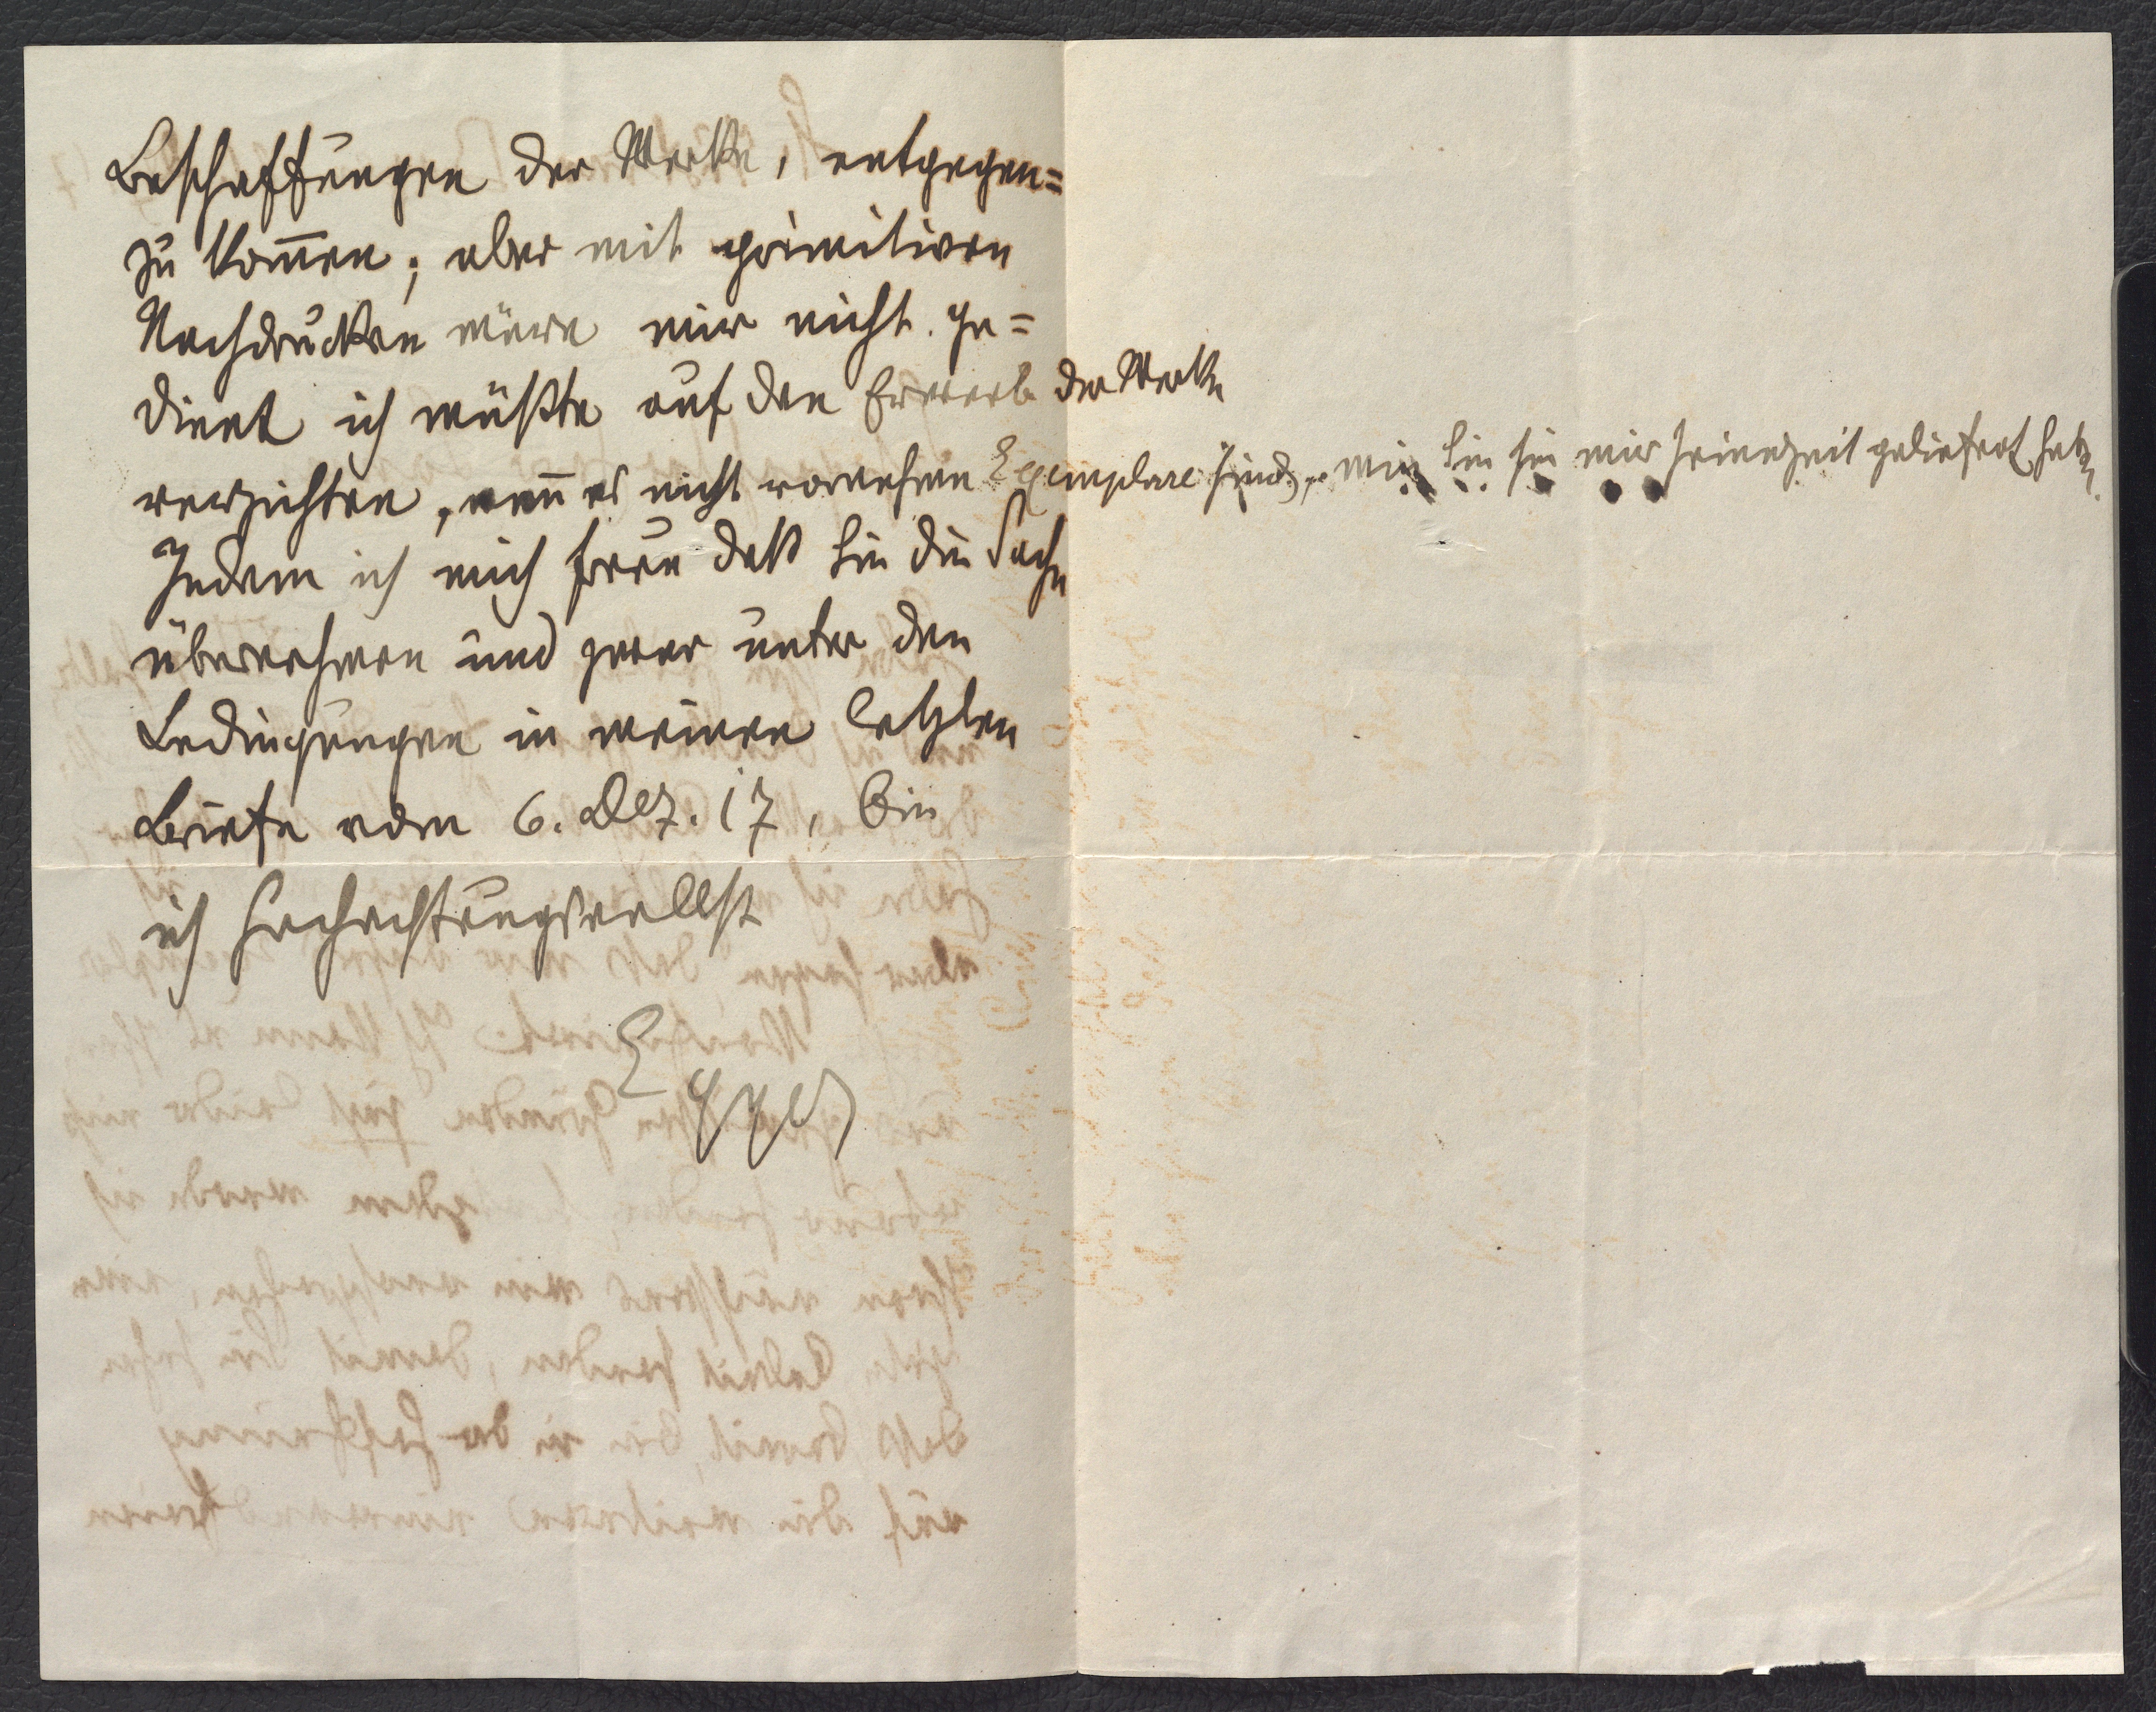 Beschaffungen der Werke, entgegen=
zu kom̄en; aber mit primitiven
Nachdrucken wäre mir nicht ge=
dient ich müßte auf den Erwerb der Werke
verzichten, wen̄ es nicht vornehme Exemplare sind, wie Sie sie mir seinerzeit geliefert hab
Indem ich mich freue daß Sie die Sache
übernehmen und zwar unter den
Bedingungen in meinen letzten
Briefe vom 6. Dez. 17, bin
ich Hochachtungsvollst
Egger